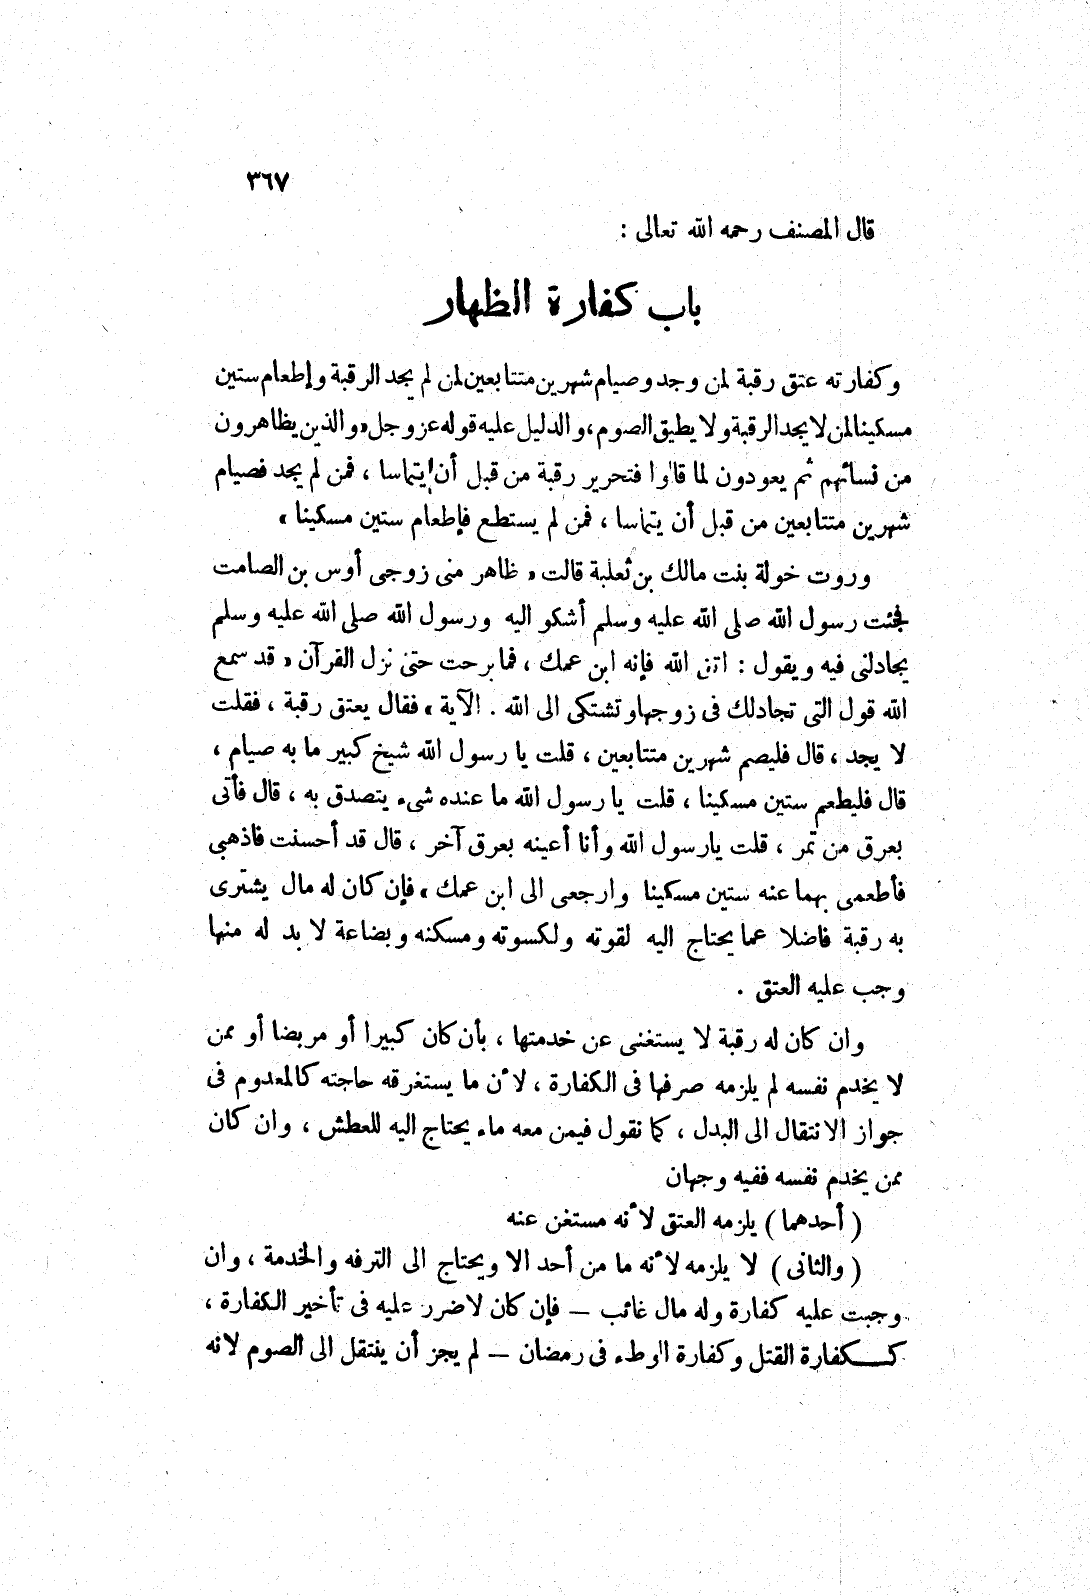 ٣٦٧
قال المصنف رحمه الله تعالى :
باب كفارة الظهار
وكفارته عتق رقبة لمن وجد وصيام شهرين متتابعين لمن لم يجد الرقبة وإطعام ستين
مسكينا لمن لا يجد الرقبة ولا يطيق الصوم ، والدليل عليه قوله عز وجل « والذين يظاهرون
من نسائهم ثم يعودون لما قالوا فتحرير رقبة من قبل أن يتماسا ، فمن لم يجد فصيام
شهرين متتابعين من قبل أن يتماسا ، فمن لم يستطع فإطعام ستين مسكينا »
وروت خولة بنت مالك بن ثعلبة قالت « ظاهر منى زوجى أوس بن الصامت
فجئت رسول الله صلى الله عليه وسلم أشكو اليه ورسول الله صلى الله عليه وسلم
يجادلنى فيه ويقول : اتق الله فإنه ابن عمك ، فما برحت حتى نزل القرآن « قد سمع
الله قول التى تجادلك فى زوجها وتشتكى الى الله . الآية » فقال يعتق رقبة ، فقلت
لا يجد ، قال فليصم شهرين متتابعين ، قلت يا رسول الله شيخ كبير ما به صيام ،
قال فليطعم ستين مسكينا ، قلت يا رسول الله ما عنده شىء يتصدق به ، قال فأتى
بعرق من تمر ، قلت يارسول الله وأنا أعينه بعرق آخر ، قال قد أحسنت فاذهبى
فأطعمى بهما عنه ستين مسكينا وارجعى الى ابن عمك » فإن كان له مال يشترى
به رقبة فاضلا عما يحتاج اليه لقوته ولكسوته ومسكنه وبضاعة لا بد له منها
وجب عليه العتق .
وان كان له رقبة لا يستغنى عن خدمتها ، بأن كان كبيرا أو مريضا أو ممن
لا يخدم نفسه لم يلزمه صرفها فى الكفارة ، لأن ما يستغرقه حاجته كالمعدوم فى
جواز الانتقال الى البدل ، كما نقول فيمن معه ماء يحتاج اليه للعطش ، وان كان
ممن يخدم نفسه ففيه وجهان
( أحدهما ) يلزمه العتق لأنه مستغن عنه
( والثانى ) لا يلزمه لأنه ما من أحد الا ويحتاج الى الترفه والخدمة ، وان
وجبت عليه كفارة وله مال غائب — فإن كان لا ضرر عليه فى تأخير الكفارة ،
كـكفارة القتل وكفارة الوطء فى رمضان — لم يجز أن ينتقل الى الصوم لانه